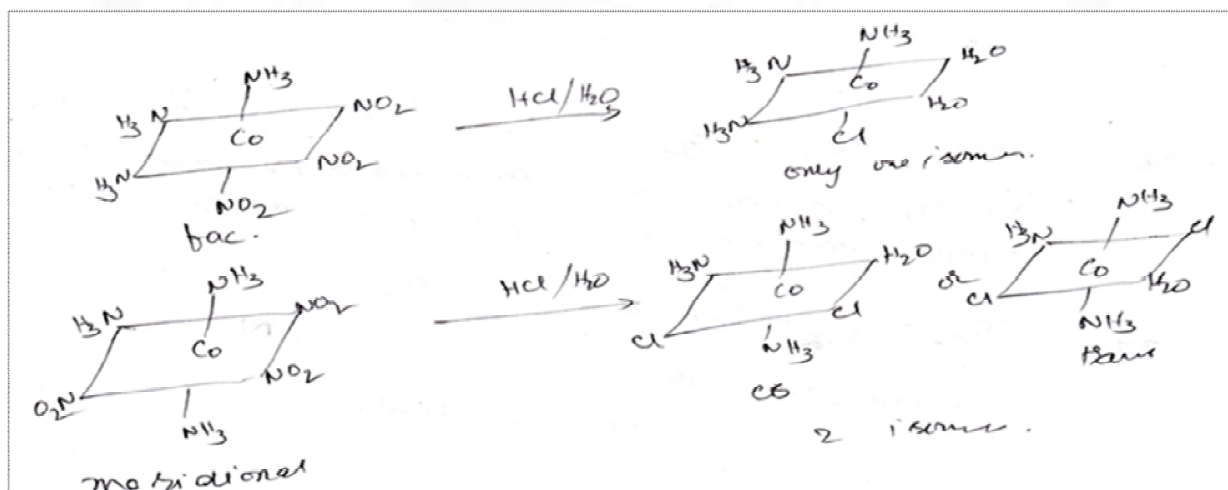 NH3
H3N NO2
Co
H3N NO2
NO2
fac.
HCl/H2O
NH3
H3N H2O
Co
H3N H2O
Cl
only one isomer.
NH3
H3N NO2
Co
O2N NO2
NH3
meridional
HCl/H2O
NH3
H3N H2O
Co
Cl Cl
NH3
cis
or
NH3
H3N Cl
Co
Cl H2O
NH3
trans
2 isomer.